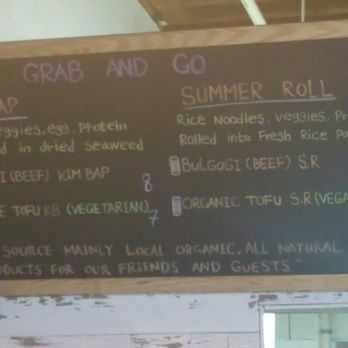 GRAB AND GO
AP
SUMMER ROLL
eggies, egg, protein
d in dried seaweed
Rice Noodles, Veggies, Pr
Rolled into Fresh Rice Pa
I (BEEF) KIM BAP 8
BULGOGI (BEEF) S.R
E TOFU KB (VEGETARIAN) 7
ORGANIC TOFU S.R (VEGA
SOURCE MAINLY LOCAL ORGANIC, ALL NATURAL
ODUCTS FOR OUR FRIENDS AND GUESTS"